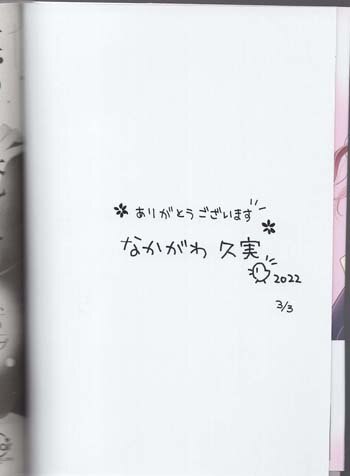 ありがとうございます
なかがわ 久実
2022
3/3